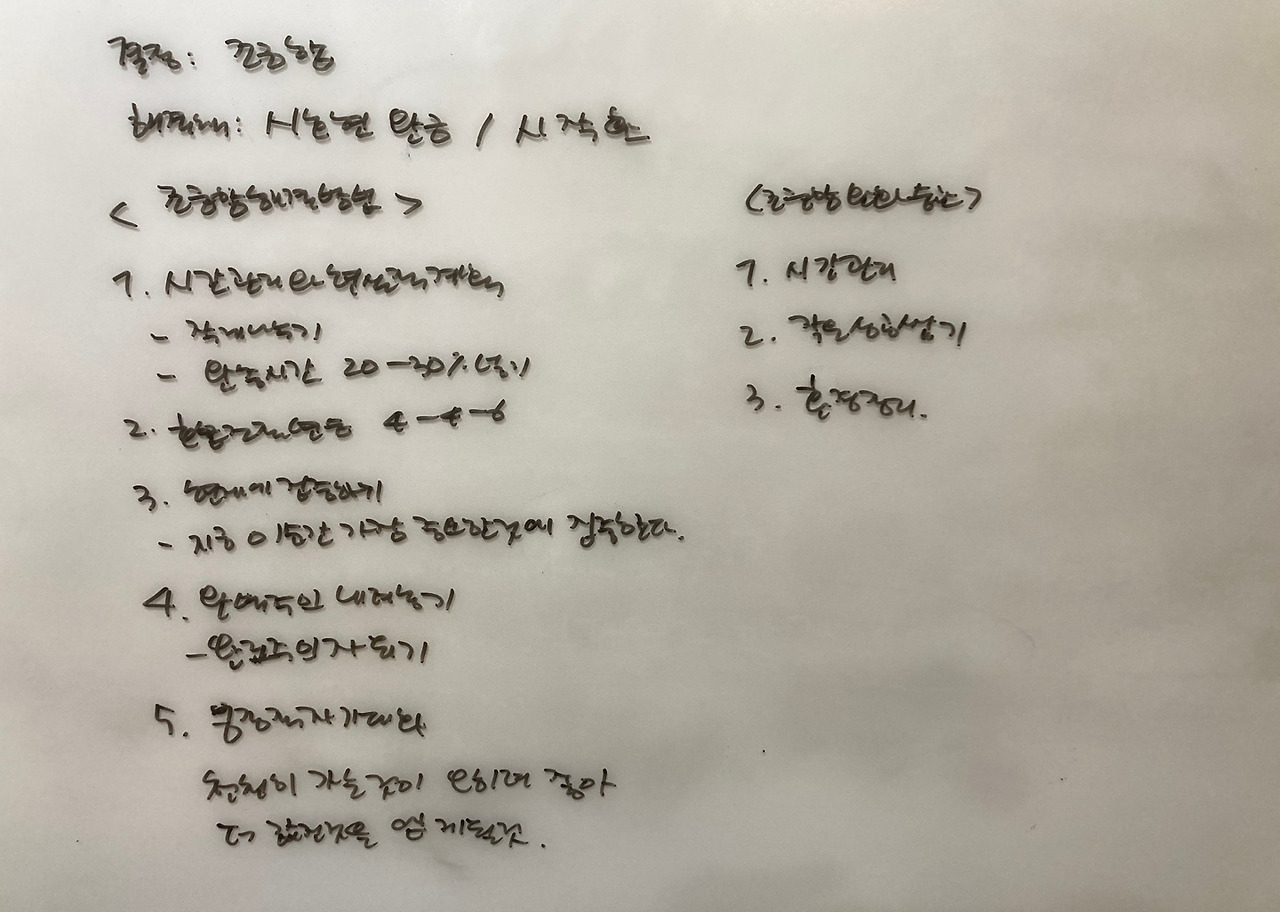 결정: 조급함
해결책: 시간현 완급 / 시작한
< 조급함해결방법 >
1. 시간관리와 현실적계획
- 작게나누기
- 완충시간 20-30% 넣기
2. 호흡조절연습 4-4-6
3. 현재에 집중하기
- 지금 이순간 가장 중요한것에 집중한다.
4. 완벽주의 내려놓기
- 완료주의자되기
5. 긍정적자기대화
천천히 가는것이 오히려 좋아
더 값진것을 얻게될것.
<조급함 완화습관>
1. 시간관리
2. 작은성취쌓기
3. 환경정리.